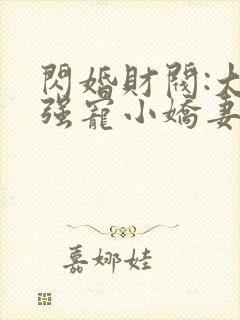 閃婚財閥:大
强寵小嬌妻
嘉娜娃